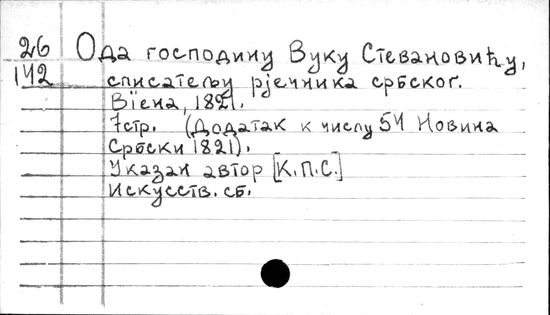 26 Ода господину Вуку Стевановићу,
142 списательу рјечника србског.
Вїена, 1821.
7стр. (Додатак к числу 54 Новина
Србски 1821).
Указан автор [К.П.С.]
Искусств. сб.